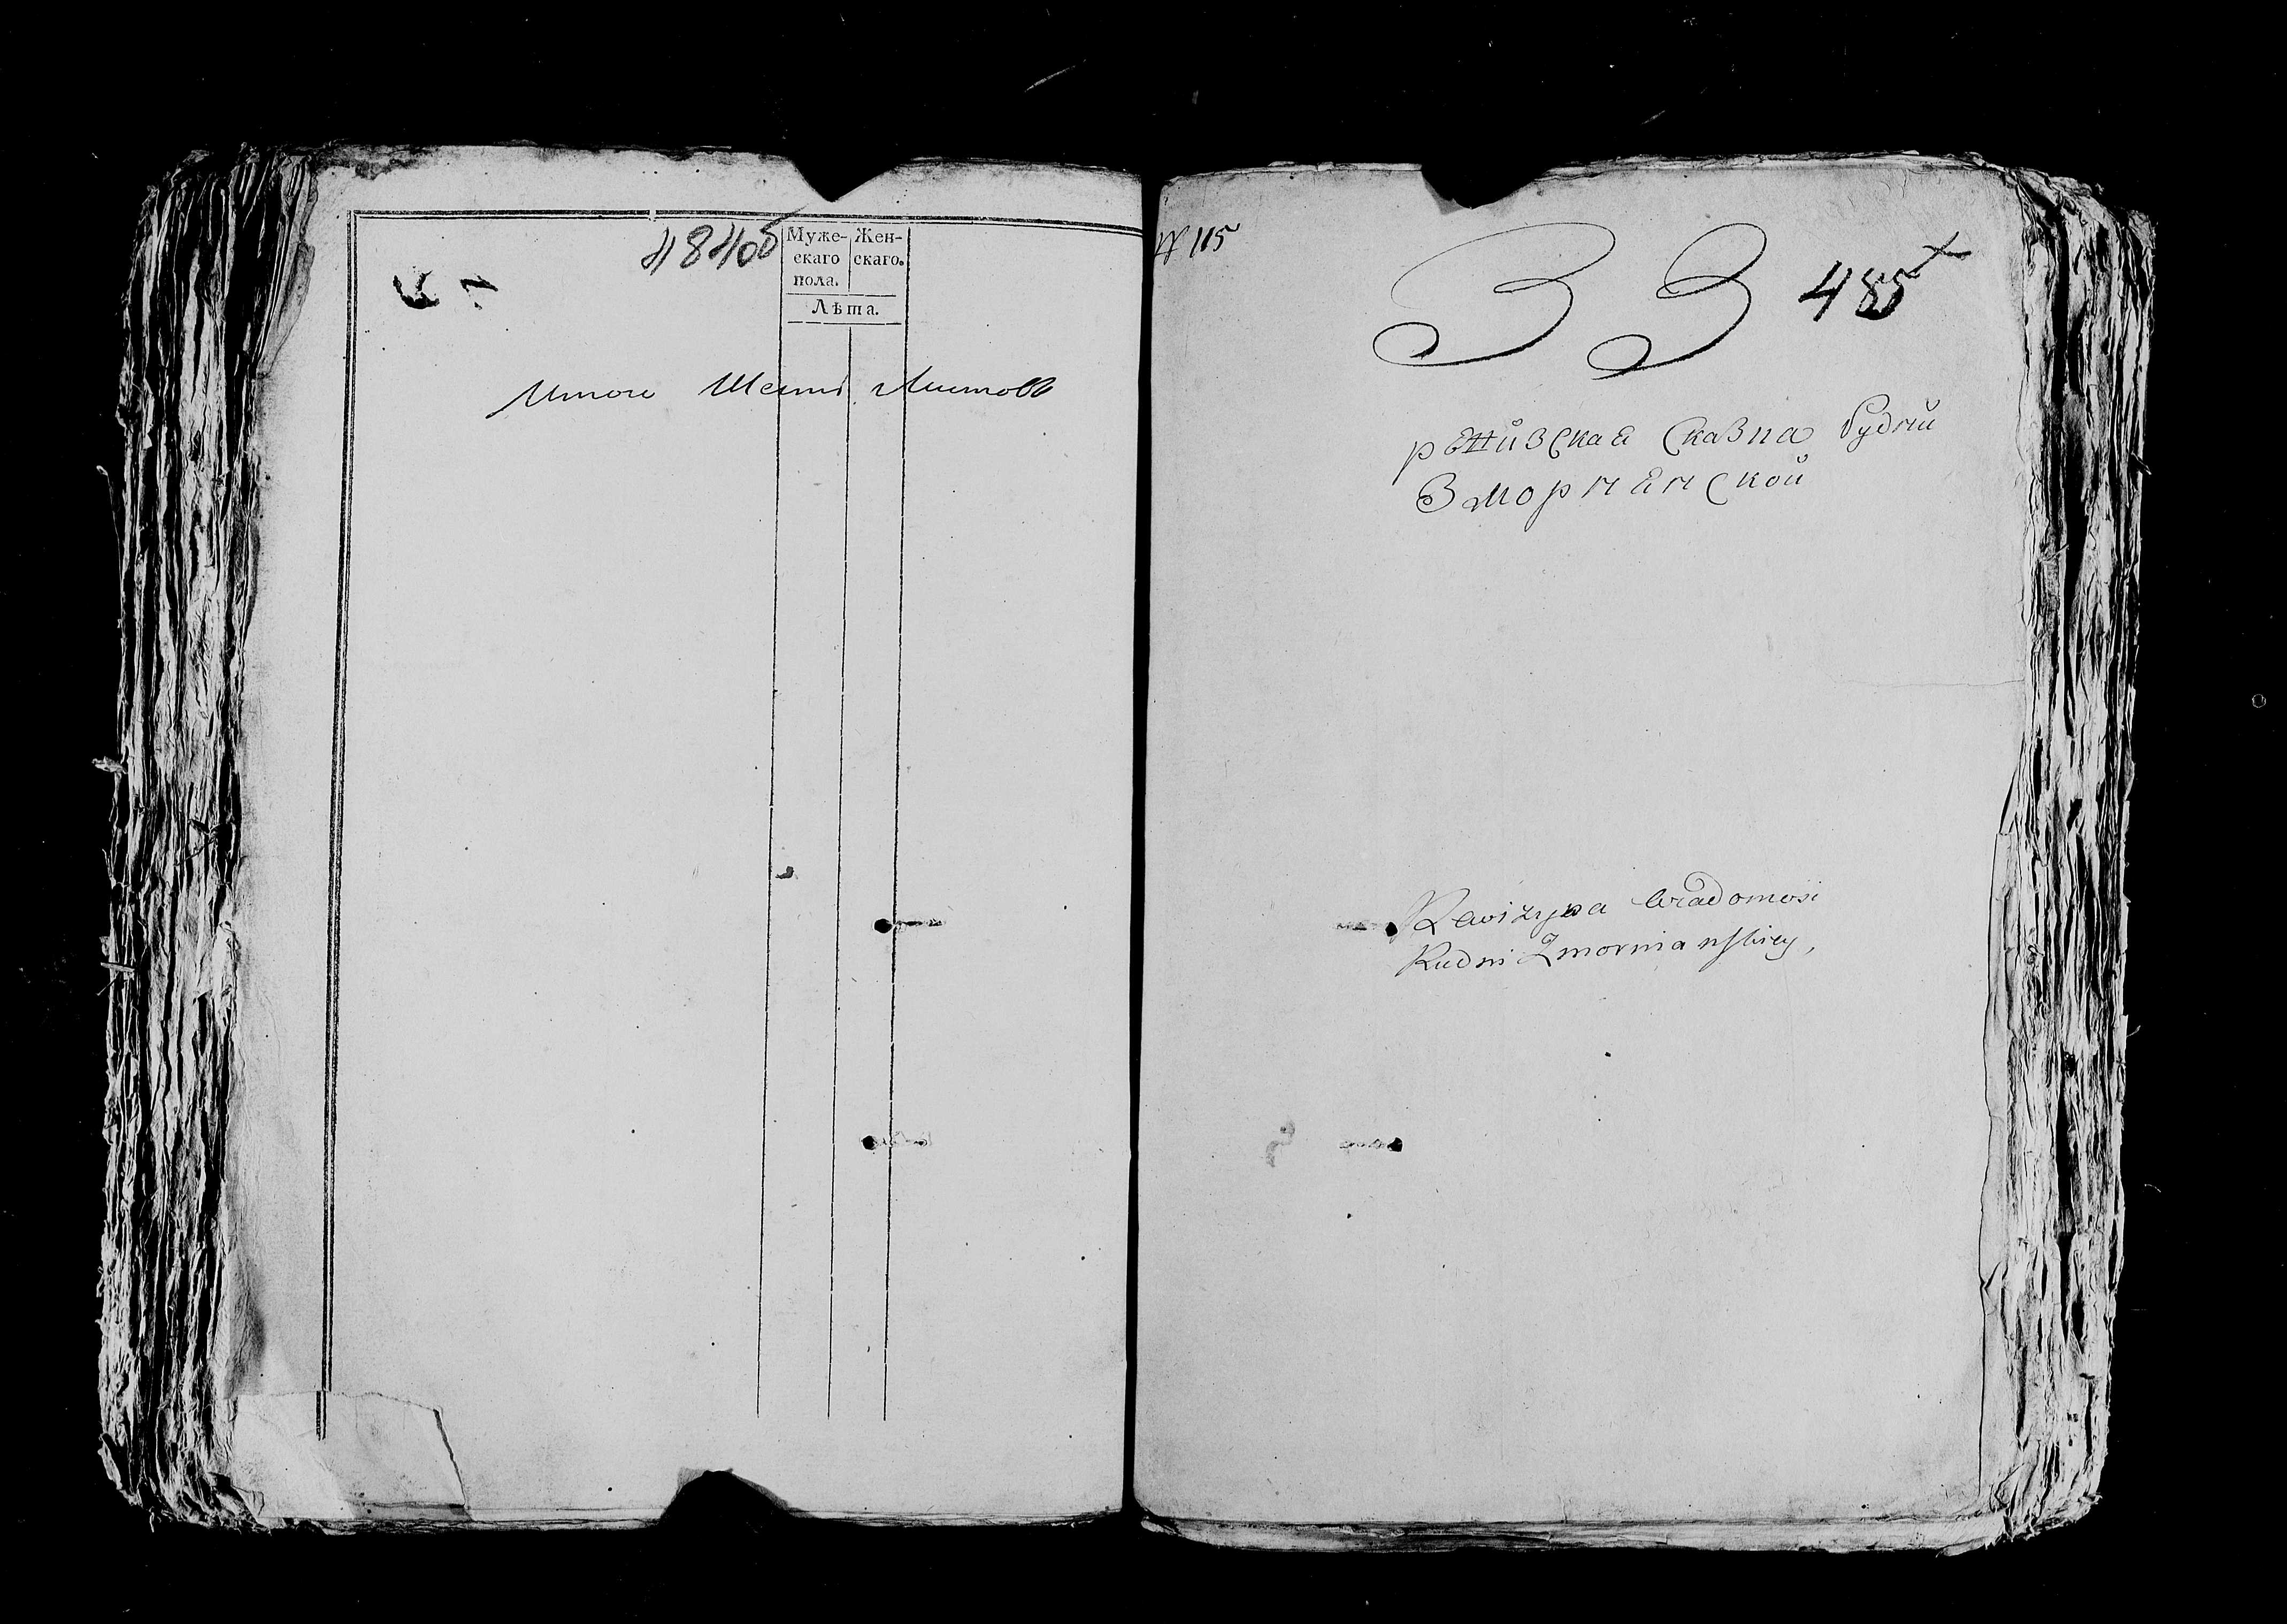 484об
Муже- Жен-
скаго скаго.
пола.
Лѣта.
Итого Шесть Листовъ
№ 115
33 485
ревизская Сказка Рудни
Зморнянской
Rewizyjna Wiadomosć
Rudni Zmornianskiey,